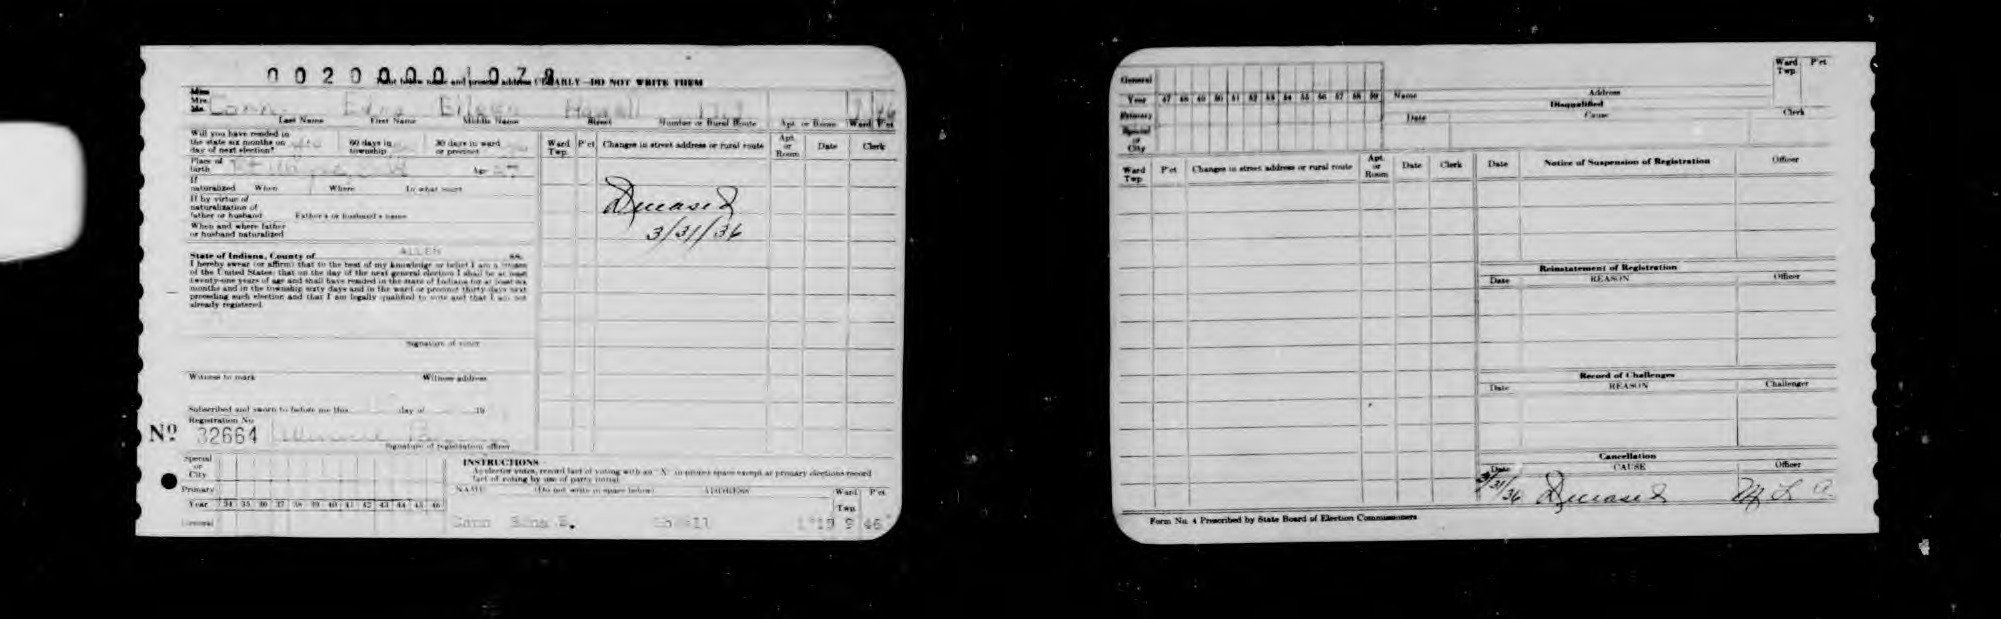 0020000 1079
Print below name and present address CLEARLY—DO NOT WRITE THEM
Miss
Mrs.
Mr.
Edna Eileen
Last Name First Name Middle Name Street Number or Rural Route Apt. or Room Ward P'ct
Will you have resided in
the state six months on
day of next election?
60 days in
township
30 days in ward
or precinct
Place of
birth
Age 27
If
naturalized When Where In what court
If by virtue of
naturalization of
father or husband Father's or husband's name
When and where father
or husband naturalized
State of Indiana, County of ALLEN ss.
I hereby swear (or affirm) that to the best of my knowledge or belief I am a citizen
of the United States; that on the day of the next general election I shall be at least
twenty-one years of age and shall have resided in the state of Indiana for at least six
months and in the township sixty days and in the ward or precinct thirty days next
preceding such election and that I am legally qualified to vote and that I am not
already registered.
Signature of voter
Witness to mark Witness address
Subscribed and sworn to before me this day of 19
Registration No.
No 32664
Signature of registration officer
Ward
Twp. P'ct Changes in street address or rural route Apt.
or
Room Date Clerk
Deceased
3/31/36
Special
or
City
Primary
Year 34 35 36 37 38 39 40 41 42 43 44 45 46
General
INSTRUCTIONS
As elector votes, record fact of voting with an "X" in proper space except at primary elections record
fact of voting by use of party initial.
NAME (Do not write in space below) ADDRESS Ward
Twp. P'ct
Edna E. 46
General
Year 47 48 49 50 51 52 53 54 55 56 57 58 59
Primary
Special
or
City
Name Address
Ward
Twp. P'ct
Disqualified
Date Cause Clerk
Ward
Twp. P'ct Changes in street address or rural route Apt.
or
Room Date Clerk
Date Notice of Suspension of Registration Officer
Reinstatement of Registration
Date REASON Officer
Record of Challenges
Date REASON Challenger
Cancellation
Date CAUSE Officer
3/31/36 Deceased M L A.
Form No. 4 Prescribed by State Board of Election Commissioners